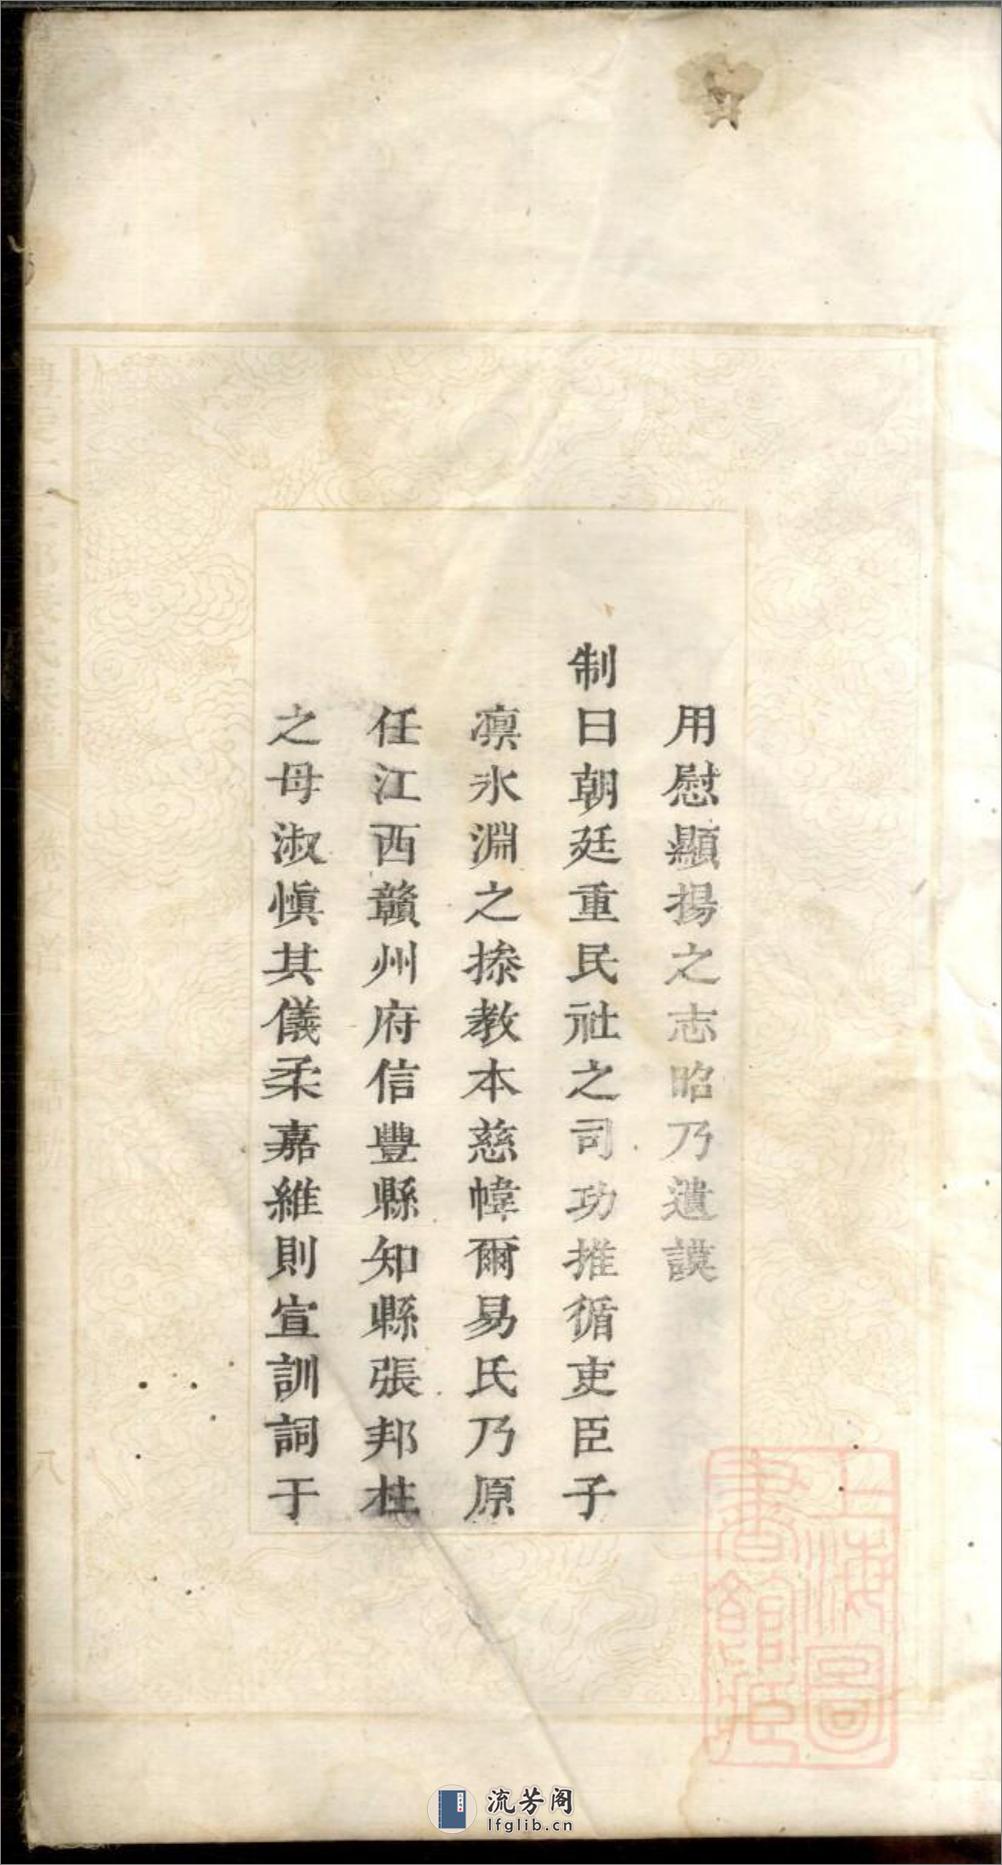 用慰顯揚之志昭乃遺謨
制曰朝廷重民社之司功推循吏臣子
凛氷淵之操教本慈幃爾易氏乃原
任江西贛州府信豐縣知縣張邦柱
之母淑慎其儀柔嘉維則宣訓詞于
上海圖
書館藏
流芳阁
lfglib.cn